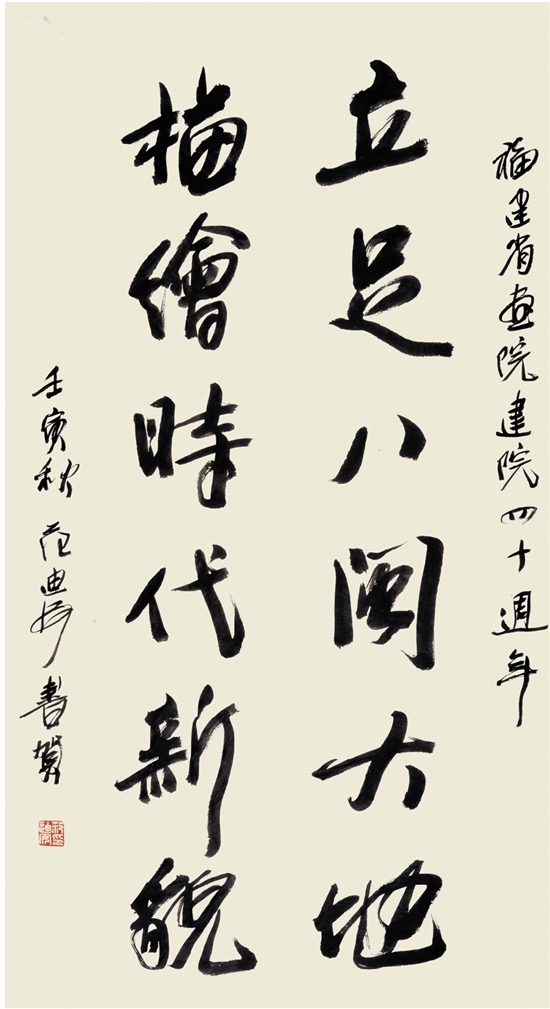 福建省画院建院四十週年
立足八闽大地
描繪時代新貌
壬寅秋 范迪安 書賀